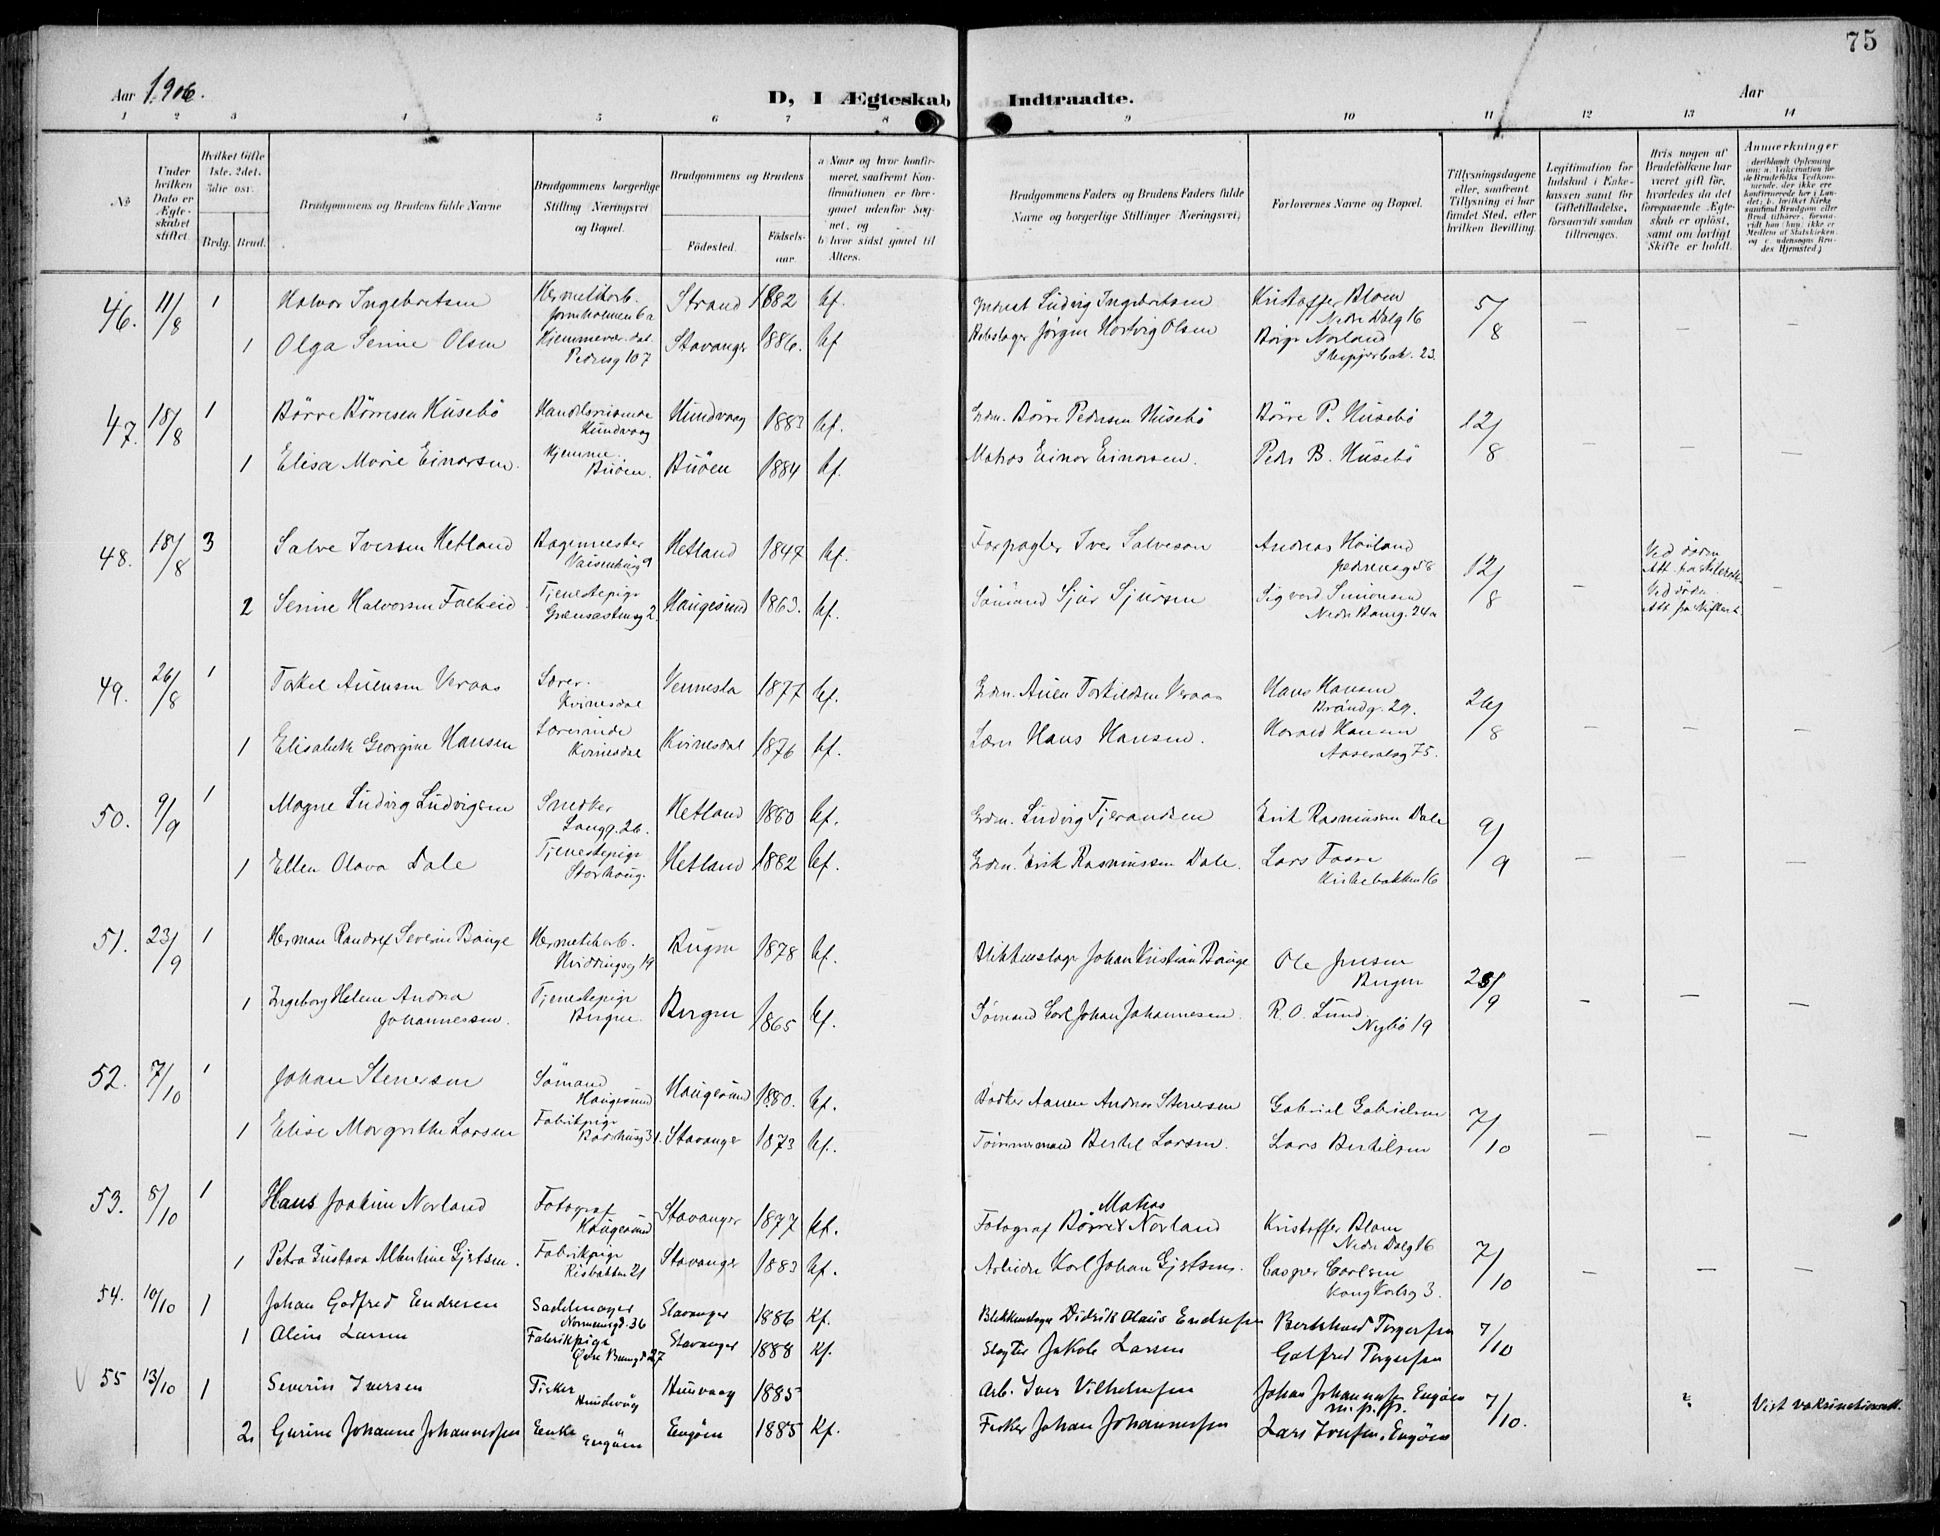 75
Aar 1906.
D, I Ægteskab Indtraadte.
Aar
1 2 3 4 5 6 7 8 9 10 11 12 13 14
No
Under hvilken Dato er Ægteskabet stiftet.
Hvilket Gifte 1ste. 2det. 3die osv.
Brdg. Brud.
Brudgommens og Brudens fulde Navne
Brudgommens borgerlige Stilling Næringsvei og Bopæl.
Brudgommens og Brudens
Fødested. Fødselsaar.
a Naar og hvor konfirmeret, saafremt Konfirmationen er foregaaet udenfor Sognet, og
b hvor sidst gaaet til Alters.
Brudgommens Faders og Brudens Faders fulde Navne og borgerlige Stillinger Næringsvei,
Forlovernes Navne og Bopæl.
Tillysningsdagene eller, saafremt Tillysning ei har fundet Sted, efter hvilken Bevilling.
Legitimation for Indskud i Enkekassen samt for Giftetilladelse, forsaavidt saadan tiltrænges.
Hvis nogen af Brudefolkene har været gift før, hvorledes da det foregaaende Ægteskab er opløst, samt om lovligt Skifte er holdt.
Anmærkninger
46. 11/8 1 Halvor Ingebretsen Hermetikarb. Jorenholmen 6a Strand 1882 kf. Ludvig Ingebretsen Kristoffer Bloem Nedre Dalg 16 5/8 - - -
1 Olga Serine Olsen Hjemmevær. dat. Pedersg 107 Stavanger 1886. kf Rebslager Jørgen Hartvig Olsen Börge Norland Skipperbak. 23.
47. 18/8 1 Börre Börresen Husebö Handelsreisende Hundvaag Hundvaag 1883 kf. Grdm. Börre Pedersen Husebö Börre P. Husebö 12/8 - - -
1 Elisa Marie Einarsen. Hjemme. Buöen. Buöen 1884 kf. Matros Einar Einarsen. Peder B. Husebö
48. 18/8 3 Salve Iversen Hetland Bagermester Vaisenhusg 9 Hetland 1847 kf. Forpagter Iver Salvesen Andreas Hauland Pedersg 58 12/8 - Ved döden Att. fra Skifterett. -
2 Serine Halvorsen Falkeid. Tjenestepige 2 Haugesund 1863. kf. Sömand Sjur Sjursen Sigvard Simonsen Nedre Bang. 24a Ved döden Att. fra Skifterett
49. 26/8 1 Torkel Auensen Veraas Lærer. Kvinesdal Vennesla 1877 kf. Grdm. Auen Torkildsen Veraas Hans Hansen Brandg. 29. 26/8 - - -
1 Elisabeth Georgine Hansen Lærerinde Kvinesdal Kvinesdal 1876 kf. Lærer Hans Hansen. Harald Hansen 75.
50. 9/9 1 Magne Ludvig Ludvigsen Snedker Langg. 26. Hetland 1880 kf. Grdm. Ludvig Tjerandsen Erik Rasmussen Dale 9/9 - - -
1 Ellen Olava Dale Tjenestepige Storhaug. Hetland 1882 kf. Grdm. Erik Rasmussen Dale. Lars Faare Kirkebakken 16
51. 23/9 1 Herman Randolf Severin Bauge Hermetikarb. Hviddingsg 19 Bergen 1878 kf. Blikkenslager Johan Kristian Bauge Ole Jensen Bergen 23/9 - - -
1 Ingeborg Helene Andrea Johannessen. Tjenestepige Bergen. Bergen 1865 kf. Sömand Carl Johan Johannesen. R. O. Lund Nybö 19
52. 7/10 1 Johan Stenersen Sömand Haugesund Haugesund 1880. kf. Bödker Aanen Andreas Stenersen Gabriel Gabrielsen 7/10 - - -
1 Elise Margrethe Larsen Fabrikpige 31. Stavanger 1873 kf. Tömmermand Bertel Larsen. Lars Bertelsen
53. 8/10 1 Hans Joakim Norland Fotograf Haugesund Stavanger 1877 kf. Matros
Fotograf Börre Norland Kristoffer Bloem Nedre Dalg 16 7/10 - - -
1 Petra Gustava Albertine Gjertsen. Fabrikpige Risbakken 21 Stavanger 1883 kf. Arbeider Karl Johan Gjertsen. Casper Carlsen Kong Karlsg 3.
54. 10/10 1 Johan Godfred Endresen Sadelmager Normansgd. 36 Stavanger 1886 Kf. Blikkenslager Didrik Olaus Endresen Bernhard Torgersen 7/10
1 Aline Larsen Fabrikpige Övre Bangd 27 Stavanger 1888 Kf. Slagter Jakob Larsen Gotfred Torgersen
55 13/10 1 Severin Iversen Fisker Hundvåg Hunvaag 1885 Arb. Iver Vilhelmsen Johan Johannessen Engøen m. p. p. 7/10. Vist vaksinationsatt.
2. Gurine Johanne Johannessen Enke Engøen Engøen 1885 Kf. Fisker Johan Johannessen Lars Iversen, Engøen